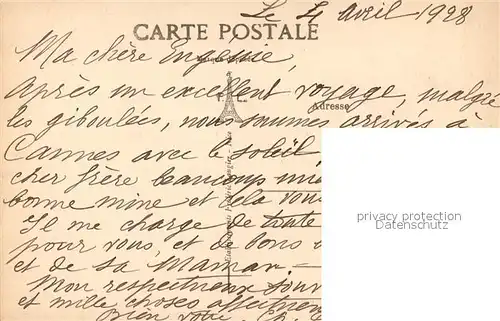 Le 4 avril 1928
CARTE POSTALE
Ma chère Eugénie,
Après un excellent voyage, malgré
Adresse
les giboulées, nous sommes arrivés à
Cannes avec le soleil
cher frère beaucoup
bonne mine et cela vous
Il me charge de toute
pour vous, et de bons
et de sa Maman. —
Mon respectueux
et mille choses
Bien votre
privacy protection
Datenschutz